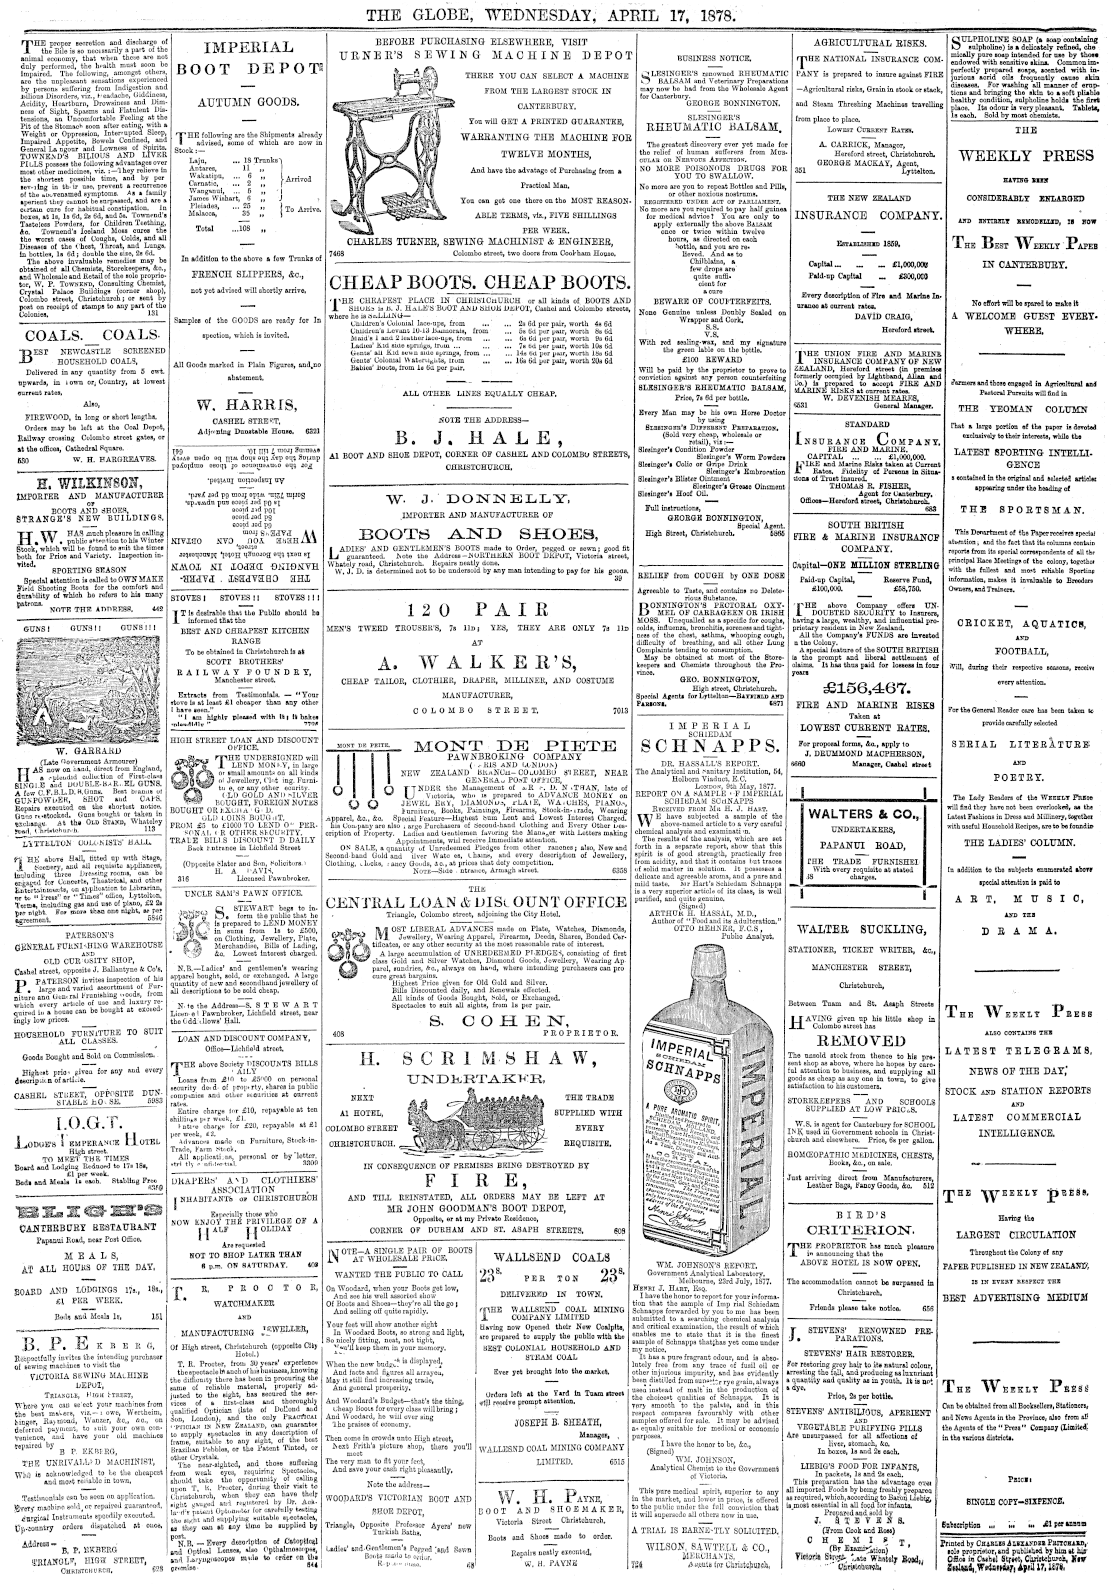 THE GLOBE, WEDNESDAY, APRIL 17, 1878.
THE proper secretion and discharge of
the Bile is so necessarily a part of the
animal economy, that when these are not
duly performed, the health must soon be
impaired. The following, amongst others,
are the unpleasant sensations experienced
by persons suffering from Indigestion and
Bilious Disorders, viz., Headache, Giddiness,
Acidity, Heartburn, Drowsiness and Dim-
ness of Sight, Spasms and Flatulent Dis-
tensions, an Uncomfortable Feeling at the
Pit of the Stomach soon after eating, with a
Weight or Oppression, Interrupted Sleep,
Impaired Appetite, Bowels Confined, and
General Languor and Lowness of Spirits.
TOWNEND'S BILIOUS AND LIVER
PILLS possess the following advantages over
most other medicines, viz. :—They relieve in
the shortest possible time, and by per-
severing in their use, prevent a recurrence
of the abovenamed symptoms. As a family
aperient they cannot be surpassed, and are a
certain cure for habitual constipation. In
boxes, at 1s, 1s 6d, 2s 6d, and 5s. Townend's
Tasteless Powders, for Children Teething,
&c. Townend's Iceland Moss cures the
the worst cases of Coughs, Colds, and all
Diseases of the Chest, Throat, and Lungs.
In bottles, 1s 6d; double the size, 2s 6d.
The above invaluable remedies may be
obtained of all Chemists, Storekeepers, &c.,
and Wholesale and Retail of the sole proprie-
tor, W. P. TOWNEND, Consulting Chemist,
Crystal Palace Buildings (corner shop),
Colombo street, Christchurch; or sent by
post on receipt of stamps to any part of the
Colonies. 131
COALS. COALS.
BEST NEWCASTLE SCREENED
HOUSEHOLD COALS,
Delivered in any quantity from 5 cwt.
upwards, in Town or Country, at lowest
current rates,
Also,
FIREWOOD, in long or short lengths.
Orders may be left at the Coal Depot,
Railway crossing Colombo street gates, or
at the offices, Cathedral Square.
550 W. H. HARGREAVES.
H. WILKINSON,
IMPORTER AND MANUFACTURER
OF
BOOTS AND SHOES,
STRANGE'S NEW BUILDINGS.
H.W. HAS much pleasure in calling
public attention to his Winter
Stock, which will be found to suit the times
both for Price and Variety. Inspection in-
vited.
SPORTING SEASON
Special attention is called to OWN MAKE
Field Shooting Boots for the comfort and
durability of which he refers to his many
patrons.
NOTE THE ADDRESS. 442
GUNS! GUNS!! GUNS!!!
W. GARRARD
(Late Government Armourer)
HAS now on hand, direct from England,
a splendid collection of First-class
SINGLE and DOUBLE-BARREL GUNS.
A few C.F.B.L.D.R.Guns. Best brands of
GUNPOWDER, SHOT and CAPS.
Repairs executed on the shortest notice.
Guns re-stocked. Guns bought or taken in
exchange. At the OLD STAND, Whately
road, Christchurch. 113
LYTTELTON COLONISTS' HALL.
THE above Hall, fitted up with Stage,
Scenery, and all requisite appliances,
including three Dressing-rooms, can be
engaged for Concerts, Theatrical, and other
Entertainments, on application to Librarian,
or to "Press" or "Times" office, Lyttelton.
Terms, including gas and use of piano, £2 2s
per night. For more than one night, as per
agreement. 5846
PATERSON'S
GENERAL FURNISHING WAREHOUSE
AND
OLD CURIOSITY SHOP,
Cashel street, opposite J. Ballantyne & Co's.
P. PATERSON invites inspection of his
large and varied assortment of Fur-
niture and General Furnishing Goods, from
which every article of use and luxury re-
quired in a house can be bought at exceed-
ingly low prices.
HOUSEHOLD FURNITURE TO SUIT
ALL CLASSES.
Goods Bought and Sold on Commission.
Highest price given for any and every
description of article.
CASHEL STREET, OPPOSITE DUN-
STABLE HOUSE. 5983
I.O.G.T.
LODGE'S TEMPERANCE HOTEL
High street.
TO MEET THE TIMES
Board and Lodging Reduced to 17s 18s,
£1 per week.
Beds and Meals 1s each. Stabling Free
6359
BLIGH'S
CANTERBURY RESTAURANT
Papanui Road, near Post Office.
MEALS,
AT ALL HOURS OF THE DAY.
BOARD AND LODGINGS 17s., 18s.,
£1 PER WEEK.
Beds and Meals 1s. 151
B. P. EKBERG,
Respectfully invites the intending purchaser
of sewing machines to visit the
VICTORIA SEWING MACHINE
DEPOT,
TRIANGLE, HIGH STREET,
Where you can select your machines from
the best makers, viz.—Howe, Wertheim,
Singer, Raymond, Wanzer, &c., &c., on
deferred payment, to suit your own con-
venience, and have your old machines
repaired by
B. P. EKBERG,
THE UNRIVALLED MACHINIST,
Who is acknowledged to be the cheapest
and most reliable in town.
Testimonials can be seen on application.
Every machine sold, or repaired guaranteed.
Surgical Instruments speedily executed.
Up-country orders dispatched at once.
Address—
B. P. EKBERG
TRIANGLE, HIGH STREET,
CHRISTCHURCH. 628
IMPERIAL
BOOT DEPOT
AUTUMN GOODS.
THE following are the Shipments already
advised, some of which are now in
Stock:—
Laju, ... 18 Trunks
Antares, 11 „
Wakatipu, ... 6 „
Carnatic, ... 2 „ Arrived
Wanganui, ... 5 „
James Wishart, 6 „
Pleiades, ... 25 „
Malacca, 35 „ To Arrive.
Total ...108 „
In addition to the above a few Trunks of
FRENCH SLIPPERS, &c.,
not yet advised will shortly arrive.
Samples of the GOODS are ready for In
spection, which is invited.
All Goods marked in Plain Figures, and no
abatement.
W. HARRIS,
CASHEL STREET,
Adjoining Dunstable House. 6321
THE CHEAPEST PAPER-
HANGING DEPOT IN TOWN
Is next the Borough Hotel, Manchester
street.
WHERE YOU CAN OBTAIN
PAPERS from
6d per piece
8d per piece
10d per piece
1s per piece and upwards.
Satin Tilts, with room 6d per yard.
An inspection invited.
For the convenience of those employed
during the day the shop will be open every
evening from 7 till 10. 641
STOVES! STOVES!! STOVES!!!
IT is desirable that the Public should be
informed that the
BEST AND CHEAPEST KITCHEN
RANGE
To be obtained in Christchurch is at
SCOTT BROTHERS'
RAILWAY FOUNDRY,
Manchester street.
Extracts from Testimonials. — "Your
stove is at least £1 cheaper than any other
I have seen."
"I am highly pleased with it; it bakes
splendidly."
HIGH STREET LOAN AND DISCOUNT
OFFICE.
THE UNDERSIGNED will
LEND MONEY, in large
or small amounts on all kinds
of Jewellery, Clothing, Furni-
ture, or any other security.
OLD GOLD AND SILVER
BOUGHT, FOREIGN NOTES
BOUGHT OR EXCHANGED.
OLD COINS BOUGHT.
FROM £5 to £1000 TO LEND ON PER-
SONAL OR OTHER SECURITY.
TRADE BILLS DISCOUNTED DAILY
Back entrance in Lichfield Street
(Opposite Slater and Son, Solicitors.)
H. A. DAVIS,
316 Licensed Pawnbroker.
UNCLE SAM'S PAWN OFFICE.
S. STEWART begs to in-
form the public that he
is prepared to LEND MONEY
in sums from 1s to £500,
on Clothing, Jewellery, Plate,
Merchandise, Bills of Lading,
&c. Lowest interest charged.
N.B.—Ladies' and gentlemen's wearing
apparel bought, sold, or exchanged. A large
quantity of new and secondhand jewellery of
all descriptions to be sold cheap.
Note the Address—S. STEWART
Licensed Pawnbroker, Lichfield street, near
the Oddfellows' Hall.
LOAN AND DISCOUNT COMPANY,
Office—Lichfield street.
THE above Society DISCOUNTS BILLS
DAILY
Loans from £10 to £5000 on personal
security deed of property, shares in public
companies and other securities at current
rates.
Entire charge for £10, repayable at ten
shillings per week, £1.
Entire charge for £20, repayable at £1
per week, £2.
Advances made on Furniture, Stock-in-
Trade, Farm Stock.
All applications, personal or by letter,
strictly confidential. 3300
DRAPERS' AND CLOTHIERS'
ASSOCIATION
INHABITANTS OF CHRISTCHURCH
Especially those who
NOW ENJOY THE PRIVILEGE OF A
HALF HOLIDAY
Are requested
NOT TO SHOP LATER THAN
6 p.m. ON SATURDAY. 409
T. R. PROCTOR,
WATCHMAKER
AND
MANUFACTURING JEWELLER,
Of High street, Christchurch (opposite City
Hotel.)
T. R. Proctor, from 30 years' experience
in the spectacle branch of his business, knowing
the difficulty there has been in procuring the
same of reliable material, properly ad-
justed to the sight, has secured the ser-
vices of a first-class and thoroughly
qualified Optician (late of Dollond and
Son, London), and the only PRACTICAL
OPTICIAN IN NEW ZEALAND, can guarantee
to supply spectacles in any description of
frame, suitable to any sight, of the best
Brazilian Pebbles, or the Patent Tinted, or
other Crystals.
The near-sighted, and those suffering
from weak eyes, requiring Spectacles,
should take the opportunity of calling
upon T. R. Proctor, during their visit to
Christchurch, when they can have their
sight gauged and registered by Dr.
Patent Optometer for carefully testing
the sight and supplying suitable spectacles,
as they can at any time be supplied by
post.
N.B.— Every description of Catoptical
and Optical Lenses, also Opthalmoscopes,
and Laryngoscopes made to order on the
premises. 844
BEFORE PURCHASING ELSEWHERE, VISIT
TURNER'S SEWING MACHINE DEPOT
THERE YOU CAN SELECT A MACHINE
FROM THE LARGEST STOCK IN
CANTERBURY.
You will GET A PRINTED GUARANTEE,
WARRANTING THE MACHINE FOR
TWELVE MONTHS,
And have the advatage of Purchasing from a
Practical Man,
You can get one there on the MOST REASON-
ABLE TERMS, viz., FIVE SHILLINGS
PER WEEK.
CHARLES TURNER, SEWING MACHINIST & ENGINEER,
7468 Colombo street, two doors from Cookham House.
CHEAP BOOTS. CHEAP BOOTS.
THE CHEAPEST PLACE IN CHRISTCHURCH or all kinds of BOOTS AND
SHOES is B. J. HALE'S BOOT AND SHOE DEPOT, Cashel and Colombo streets,
where he is SELLING—
Children's Colonial lace-ups, from ... ... 2s 6d per pair, worth 4s 6d
Children's Levant 10-13 Balmorals, from ... 5s 6d per pair, worth 8s 6d
Maid's 1 and 2 leather lace-ups, from ... ... 6s 6d per pair, worth 9s 6d
Ladies' Kid side springs, from ... ... 7s 6d per pair, worth 10s 6d
Gents' all Kid sewn side springs, from ... ... 14s 6d per pair, worth 18s 6d
Gents' Colonial Watertights, from ... ... 16s 6d per pair, worth 20s 6d
Babies' Boots, from 1s 6d per pair.
ALL OTHER LINES EQUALLY CHEAP.
NOTE THE ADDRESS—
B. J. HALE,
A1 BOOT AND SHOE DEPOT, CORNER OF CASHEL AND COLOMBO STREETS,
CHRISTCHURCH.
W. J. DONNELLY,
IMPORTER AND MANUFACTURER OF
BOOTS AND SHOES,
LADIES' AND GENTLEMEN'S BOOTS made to Order, pegged or sewn; good fit
guaranteed. Note the Address—NORTHERN BOOT DEPOT, Victoria street,
Whately road, Christchurch. Repairs neatly done.
W. J. D. is determined not to be undersold by any man intending to pay for his goods.
39
120 PAIR
MEN'S TWEED TROUSER'S, 7s 11D; YES, THEY ARE ONLY 7s 11D
AT
A. WALKER'S,
CHEAP TAILOR, CLOTHIER, DRAPER, MILLINER, AND COSTUME
MANUFACTURER,
COLOMBO STREET, 7013
MONT DE PEITE.
MONT DE PIETE
PAWNBROKING COMPANY
(PARIS AND LONDON)
NEW ZEALAND BRANCH—COLOMBO STREET, NEAR
GENERAL POST OFFICE,
UNDER the Management of MR. D. NATHAN, late of
Victoria, who is prepared to ADVANCE MONEY on
JEWELLERY, DIAMONDS, PLATE, WATCHES, PIANOS,
Furniture, Books, Paintings, Firearms, Stock-in-trade, Wearing
Apparel, &c., &c. Special Feature—Highest Sum Lent and Lowest Interest Charged.
his Company are also Large Purchasers of Second-hand Clothing and Every Other De-
scription of Property. Ladies and Gentlemen favoring the Manager with Letters making
Appointments, will receive Immediate attention.
ON SALE, a quantity of Unredeemed Pledges from other branches; also, New and
Second-hand Gold and Silver Watches, Chains, and every description of Jewellery,
Clothing, Clocks, Fancy Goods, &c., at prices that defy competition.
NOTE—Side Entrance, Armagh street. 6358
THE
CENTRAL LOAN & DISCOUNT OFFICE
Triangle, Colombo street, adjoining the City Hotel.
MOST LIBERAL ADVANCES made on Plate, Watches, Diamonds,
Jewellery, Wearing Apparel, Firearms, Deeds, Shares, Bonded Cer-
tificates, or any other security at the most reasonable rate of interest.
A large accumulation of UNREDEEMED PLEDGES, consisting of first
class Gold and Silver Watches, Diamond Goods, Jewellery, Wearing Ap-
parel, sundries, &c., always on hand, where intending purchasers can pro
cure great bargains.
Highest Price given for Old Gold and Silver.
Bills Discounted daily, and Renewals effected.
All kinds of Goods Bought, Sold, or Exchanged.
Spectacles to suit all sights, from 1s per pair.
S. COHEN,
408 PROPRIETOR.
H. SCRIMSHAW,
UNDERTAKER,
NEXT
A1 HOTEL,
COLOMBO STREET
CHRISTCHURCH.
THE TRADE
SUPPLIED WITH
EVERY
REQUISITE.
IN CONSEQUENCE OF PREMISES BEING DESTROYED BY
FIRE,
AND TILL REINSTATED, ALL ORDERS MAY BE LEFT AT
MR JOHN GOODMAN'S BOOT DEPOT,
Opposite, or at my Private Residence,
CORNER OF DURHAM AND ST. ASAPH STREETS, 608
NOTE—A SINGLE PAIR OF BOOTS
AT WHOLESALE PRICE.
WANTED THE PUBLIC TO CALL
On Woodard, when your Boots get low,
And see his well assorted show
Of Boots and Shoes—they're all the go;
And selling off quite rapidly.
Your feet will show another sight
In Woodard Boots, so strong and light,
So nicely fitting, neat, not tight,
You'll keep them in your memory.
When the new budget is displayed,
And facts and figures all arrayed,
May it still find increasing trade,
And general prosperity.
And Woodard's Budget—that's the thing,
Cheap Boots for every class will bring;
And Woodard, he will ever sing
The praises of economy.
Then come in crowds unto High street,
Next Frith's picture shop, there you'll
meet
The very man to fit your feet,
And save your cash right pleasantly.
Note the address—
WOODARD'S VICTORIAN BOOT AND
SHOE DEPOT,
Triangle, Opposite Professor Ayers' new
Turkish Baths,
Ladies' and Gentlemen's Pegged and Sewn
Boots made to order.
Repairs done. 68
WALLSEND COALS
23s. PER TON 23s.
DELIVERED IN TOWN.
THE WALLSEND COAL MINING
COMPANY LIMITED
Having now Opened their New Coalpits,
are prepared to supply the public with the
BEST COLONIAL HOUSEHOLD AND
STEAM COAL
Ever yet brought into the market.
Orders left at the Yard in Tuam street
will receive prompt attention.
JOSEPH B. SHEATH,
Manager,
WALLESND COAL MINING COMPANY
LIMITED. 6515
W. H. PAYNE,
BOOT AND SHOEMAKER,
Victoria Street Christchurch.
Boots and Shoes made to order.
Repairs neatly executed.
W. H. PAYNE
BUSINESS NOTICE.
SLESINGER'S renowned RHEUMATIC
BALSAM and Veterinary Preparations
may now be had from the Wholesale Agent
for Canterbury.
GEORGE BONNINGTON.
SLESINGER'S
RHEUMATIC BALSAM.
The greatest discovery ever yet made for
the relief of human sufferers from MUS-
CULAR OR NERVOUS AFFECTION.
NO MORE POISONOUS DRUGS FOR
YOU TO SWALLOW.
No more are you to repeat Bottles and Pills,
or other noxious nostrums.
REGISTERED UNDER ACT OF PARLIAMENT.
No more are you required to pay half guinea
for medical advice! You are only to
apply externally the above BALSAM
once or twice within twelve
hours, as directed on each
bottle, and you are re-
lieved. And as to
Chilblains, a
few drops are
quite suffi-
cient for
a cure
BEWARE OF COUPTERFEITS.
None Genuine unless Doubly Sealed on
Wrapper and Cork.
S.S.
V.S.
With red sealing-wax, and my signature
the green lable on the bottle.
£100 REWARD
Will be paid by the proprietor to prove to
conviction against any person counterfeiting
SLESINGER'S RHEUMATIC BALSAM,
Price, 7s 6d per bottle.
Every Man may be his own Horse Doctor
by using
SLESINGER'S DIFFERENT PREPARATION.
(Sold very cheap, wholesale or
retail), viz:—
Slesinger's Condition Powder
Slesinger's Worm Powders
Slesinger's Colic or Gripe Drink
Slesinger's Embrocation
Slesinger's Blister Ointment
Slesinger's Grease Ointment
Slesinger's Hoof Oil.
Full instructions,
GEORGE BONNINGTON,
Special Agent.
High Street, Christchurch. 5865
RELIEF from COUGH by ONE DOSE
Agreeable to Taste, and contains no Delete-
rious Substance.
BONNINGTON'S PECTORAL OXY-
MEL OF CARRAGEEN OR IRISH
MOSS. Unequalled as a specific for coughs,
colds, influenza, bronchitis, soreness and tight-
ness of the chest, asthma, whooping cough,
difficulty of breathing, and all other Lung
Complaints tending to consumption.
May be obtained at most of the Store-
keepers and Chemists throughout the Pro-
vince.
GEO. BONNINGTON,
High street, Christchurch.
Special Agents for Lyttelton—BAYFIELD AND
PARSONS. 5871
IMPERIAL
SCHIEDAM
SCHNAPPS.
DR. HASSALL'S REPORT.
The Analytical and Sanitary Institution, 54,
Holborn Viaduct, E.C.
London, 9th May, 1877.
REPORT ON A SAMPLE OF IMPERIAL
SCHIEDAM SCHNAPPS
RECEIVED FROM MR H. J. HART.
WE have subjected a sample of the
above-named article to a very careful
chemical analysis and examination.
The results of the analysis, which are set
forth in a separate report, show that this
spirit is of good strength, practically free
from acidity, and that it contains but traces
of solid matter in solution. It possesses a
delicate and agreeable aroma, and a pure and
mild taste. Mr Hart's Schiedam Schnapps
is a very superior article of its class, is well
purified, and quite genuine.
(Signed)
ARTHUR H. HASSAL, M.D.,
Author of "Food and its Adulteration."
OTTO HEHNER, F.C.S.,
Public Analyst.
IMPERIAL
SCHIEDAM
SCHNAPPS
A PURE AROMATIC SPIRIT,
IMPERIAL.
WM. JOHNSON'S REPORT.
Government Analytical Laboratory.
Melbourne, 23rd July, 1877.
HENRI J. HART, Esq.
I have the honor to report for your informa-
tion that the sample of Imperial Schiedam
Schnapps forwarded by you to me has been
submitted to a searching chemical analysis
and critical examination, the result of which
enables me to state that it is the finest
sample of Schnapps that has yet come under
my notice.
It has a pure fragrant odour, and is abso-
lutely free from any trace of fusil oil or
other injurious impurity, and has evidently
been distilled from superior rye grain, always
used instead of malt in the production of
the choicest qualities of Schnapps. It is
very smooth to the palate, and in this
respect compares favourably with other
samples offered for sale. It may be advised
as equally suitable for medical or economic
purposes.
I have the honor to be, &c.,
(Signed)
WM. JOHNSON,
Analytical Chemist to the Government
of Victoria.
This pure medical spirit, superior to any
in the market, and lower in price, is offered
to the public under the full conviction that
it will supersede all others now in use.
A TRIAL IS EARNESTLY SOLICITED.
WILSON, SAWTELL & CO.,
MERCHANTS.
724 Agents for Christchurch.
AGRICULTURAL RISKS.
THE NATIONAL INSURANCE COM-
PANY is prepared to insure against FIRE
—Agricultural risks, Grain in stook or stack,
and Steam Threshing Machines travelling
from place to place.
LOWEST CURRENT RATES.
A. CARRICK, Manager,
Hereford street, Christchurch.
GEORGE MACKAY, Agent,
351 Lyttelton.
THE NEW ZEALAND
INSURANCE COMPANY.
ESTABLISHED 1859.
Capital... ... ... £1,000,000
Paid-up Capital ... £300,000
Every description of Fire and Marine In-
surance at current rates.
DAVID CRAIG,
Hereford street.
THE UNION FIRE AND MARINE
INSURANCE COMPANY OF NEW
ZEALAND, Hereford street (in premises
formerly occupied by Lightband, Allan and
Co.) is prepared to accept FIRE AND
MARINE RISKS at current rates.
W. DEVENISH MEARES,
6531 General Manager.
STANDARD
INSURANCE COMPANY.
FIRE AND MARINE.
CAPITAL ... ... £1,000,000.
FIRE and Marine Risks taken at Current
Rates. Fidelity of Persons in Situa-
tions of Trust insured.
THOMAS R. FISHER,
Agent for Canterbury.
Offices—Hereford street, Christchurch. 683
SOUTH BRITISH
FIRE & MARINE INSURANCE
COMPANY.
Capital—ONE MILLION STERLING
Paid-up Capital, Reserve Fund,
£100,000. £58,750.
THE above Company offers UN-
DOUBTED SECURITY to Insurers,
having a large, wealthy, and influential pro-
prietary resident in New Zealand.
All the Company's FUNDS are invested
in the Colony.
A special feature of the SOUTH BRITISH
is the prompt and liberal settlement of
claims. It has thus paid for losses in four
years
£156,467.
FIRE AND MARINE RISKS
Taken at
LOWEST CURRENT RATES.
For proposal forms, &c., apply to
J. DRUMMOND MACPHERSON,
6660 Manager, Cashel street
WALTERS & CO.,
UNDERTAKERS,
PAPANUI ROAD,
THE TRADE FURNISHED
With every requisite at stated
charges.
WALTER SUCKLING,
STATIONER, TICKET WRITER, &c.,
MANCHESTER STREET,
Christchurch,
Between Tuam and St. Asaph Streets
HAVING given up his little shop in
Colombo street has
REMOVED
The unsold stock from thence to his pre-
sent shop as above, where he hopes by care-
ful attention to business, and supplying all
goods as cheap as any one in town, to give
satisfaction to his customers.
STOREKEEPERS AND SCHOOLS
SUPPLIED AT LOW PRICES.
W.S. is agent for Canterbury for SCHOOL
INK used in Government schools in Christ-
church and elsewhere. Price, 6s per gallon.
HOMŒOPATHIC MEDICINES, CHESTS,
Books, &c., on sale.
Just arriving direct from Manufacturers,
Leather Bags, Fancy Goods, &c. 512
BIRD'S
CRITERION.
THE PROPRIETOR has much pleasure
is announcing that the
ABOVE HOTEL IS NOW OPEN.
The accommodation cannot be surpassed in
Christchurch.
Friends please take notice. 656
J. STEVENS' RENOWNED PRE-
PARATIONS.
STEVENS' HAIR RESTORER.
For restoring grey hair to its natural colour,
arresting the fall, and producing as luxuriant
a quantity and quality as in youth. It is not
a dye.
Price, 2s per bottle.
STEVENS' ANTIBILIOUS, APERIENT
AND
VEGETABLE PURIFYING PILLS
Are unsurpassed for all affections of
liver, stomach, &c.
In boxes, 1s and 2s each.
LIEBIG'S FOOD FOR INFANTS,
In packets, 1s and 2s each.
This preparation has the advantage over
all imported Foods by being freshly prepared
as required, which, according to Baron Liebig,
is most essential in all food for infants.
Prepared and sold by
J. STEVENS,
(From Cook and Ross)
CHEMIST,
(By Examination)
Victoria Street late Whately Road,
Christchurch.
SULPHOLINE SOAP (a soap containing
sulpholine) is a delicately refined, che-
mically pure soap intended for use by those
endowed with sensitive skins. Common im-
perfectly prepared soaps, scented with in-
jurious acrid oils frequently cause skin
diseases. For washing all manner of erup-
tions and bringing the skin to a soft pliable
healthy condition, sulpholine holds the first
place. Its odour is very pleasant. Tablets,
1s each. Sold by most chemists.
THE
WEEKLY PRESS
HAVING BEEN
CONSIDERABLY ENLARGED
AND ENTIRELY REMODELLED, IS NOW
THE BEST WEEKLY PAPER
IN CANTERBURY.
No effort will be spared to make it
A WELCOME GUEST EVERY-
WHERE.
Farmers and those engaged in Agricultural and
Pastoral Pursuits will find in
THE YEOMAN COLUMN
That a large portion of the paper is devoted
exclusively to their interests, while the
LATEST SPORTING INTELLI-
GENCE
s contained in the original and selected articles
appearing under the heading of
THE SPORTSMAN.
This Department of the Paper receives special
attention; and the fact that its columns contain
reports from its special correspondents of all the
principal Race Meetings of the colony, together
with the fullest and most reliable Sporting
information, makes it invaluable to Breeders
Owners, and Trainers.
CRICKET, AQUATICS,
AND
FOOTBALL,
Will, during their respective seasons, receive
every attention.
For the General Reader care has been taken to
provide carefully selected
SERIAL LITERATURE
AND
POETRY.
The Lady Readers of the WEEKLY PRESS
will find they have not been overlooked, as the
Latest Fashions in Dress and Millinery, together
with useful Household Recipes, are to be found in
THE LADIES' COLUMN.
In addition to the subjects enumerated above
special attention is paid to
ART, MUSIC,
AND THE
DRAMA.
THE WEEKLY PRESS
ALSO CONTAINS THE
LATEST TELEGRAMS,
NEWS OF THE DAY,
STOCK AND STATION REPORTS
AND
LATEST COMMERCIAL
INTELLIGENCE.
THE WEEKLY PRESS,
Having the
LARGEST CIRCULATION
Throughout the Colony of any
PAPER PUBLISHED IN NEW ZEALAND,
IS IN EVERY RESPECT THE
BEST ADVERTISING MEDIUM
THE WEEKLY PRESS
Can be obtained from all Booksellers, Stationers,
and News Agents in the Province, also from all
the Agents of the "Press" Company (Limited)
in the various districts.
PRICE:
SINGLE COPY—SIXPENCE.
Subscription ... ... ... £1 per annum
Printed by CHARLES ALEXANDER PRITCHARD,
sole proprietor, and published by him at his
Office in Cashel Street, Christchurch, New
Zealand, Wednesday, April 17, 1878.